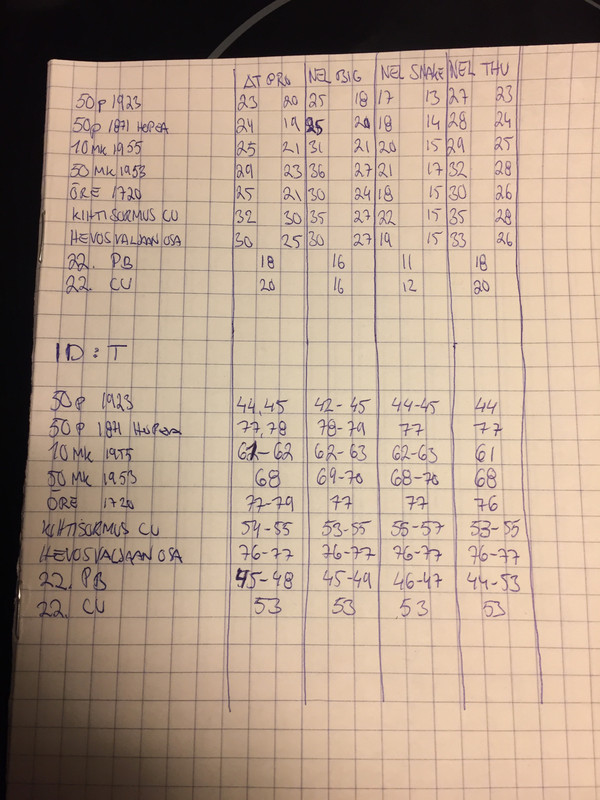 ΔT PRO NEL BIG NEL SNAKE NEL THU
50p 1923 23 20 25 18 17 13 27 23
50p 1871 HOPEA 24 19 25 20 18 14 28 24
10 MK 1955 25 21 31 21 20 15 29 25
50 MK 1953 29 23 36 27 21 17 32 28
ÖRE 1720 25 21 30 24 18 15 30 26
KIHTISORMUS CU 32 30 35 27 22 15 35 28
HEVOSVALJAAN OSA 30 25 30 27 19 15 33 26
22. PB 18 16 11 18
22. CU 20 16 12 20
ID: T
50p 1923 44,45 42-45 44-45 44
50p 1871 HOPEA 77,78 78-79 77 77
10 MK 1955 61-62 62-63 62-63 61
50 MK 1953 68 69-70 68-70 68
ÖRE 1720 77-79 77 77 76
KIHTISORMUS CU 54-55 53-55 55-57 53-55
HEVOSVALJAAN OSA 76-77 76-77 76-77 76-77
22. PB 45-48 45-49 46-47 44-53
22. CU 53 53 53 53